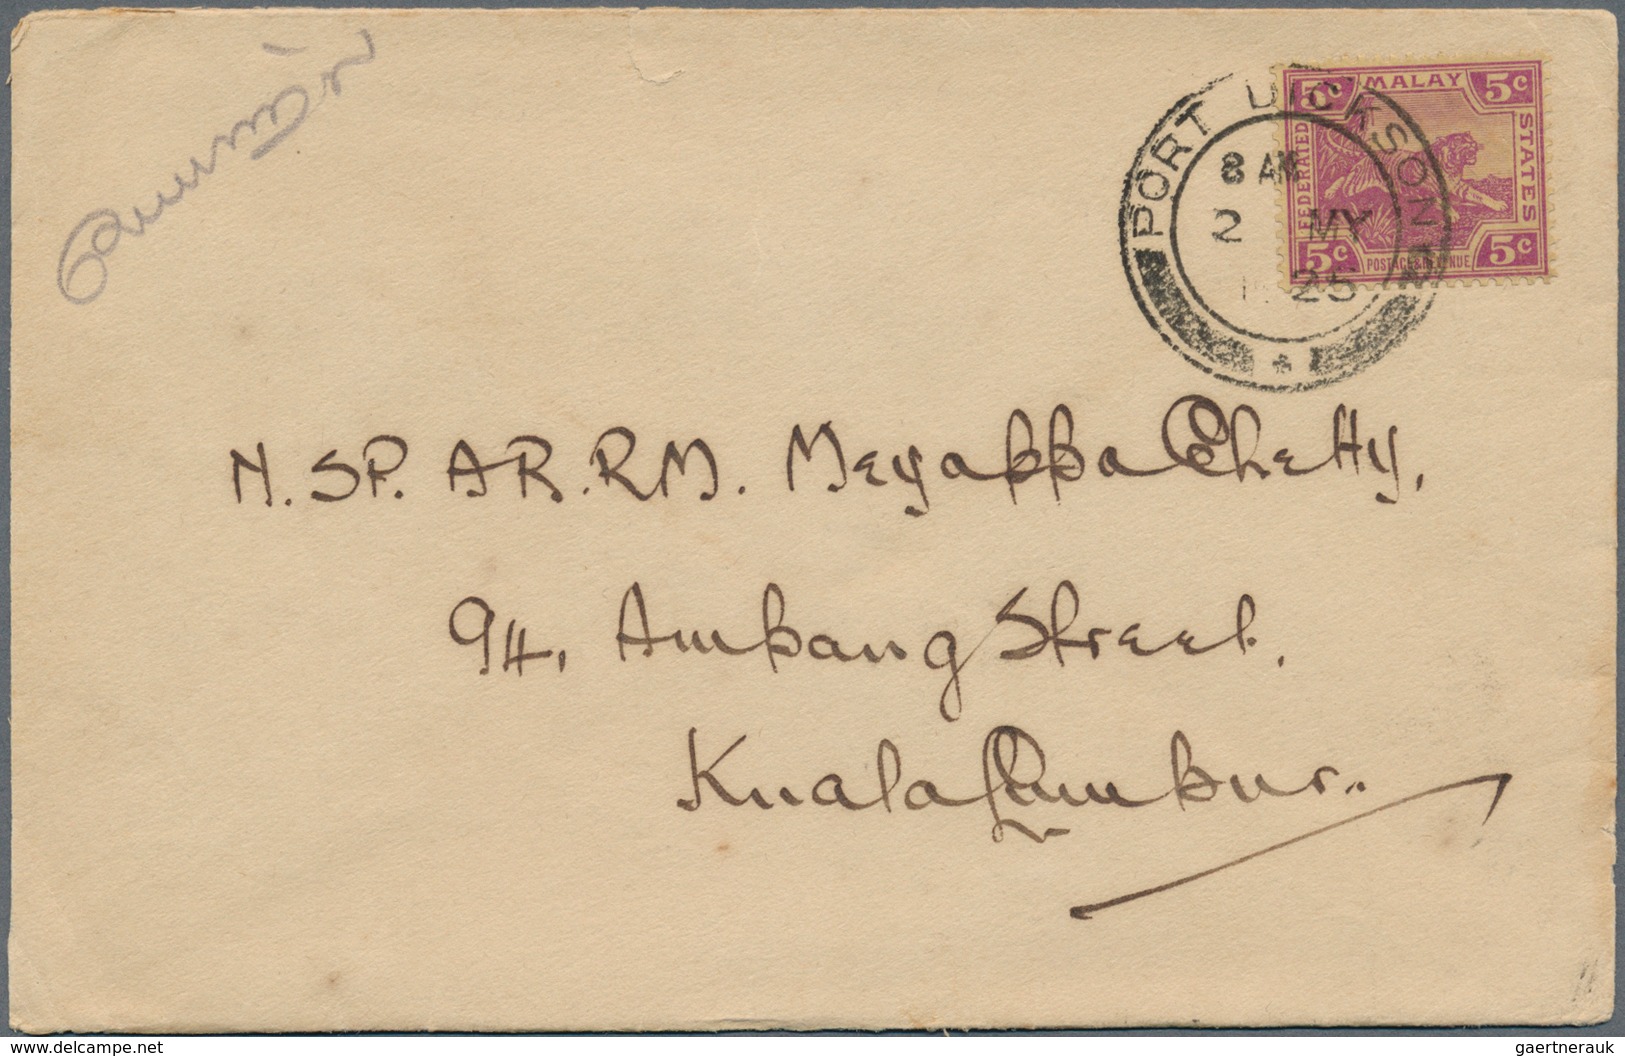 PORT DICKSON
8 AM
2 MY
1925
5c MALAY 5c
FEDERATED
STATES
5c POSTAGE & REVENUE 5c
N. SP. AR. RM. Meyappa Chetty,
94, Ampang Street.
Kuala Lumpur.
www.delcampe.net
gaertnerauk